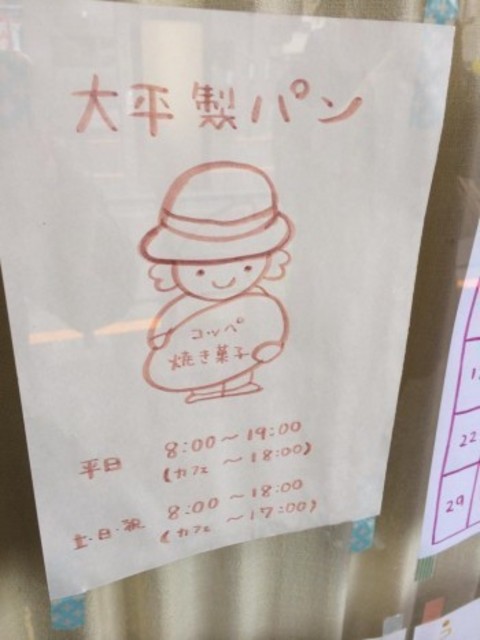 大平製パン
コッペ
焼き菓子
平日 8:00〜19:00
(カフェ 〜18:00)
土·日·祝 8:00〜18:00
(カフェ 〜17:00)
22
29